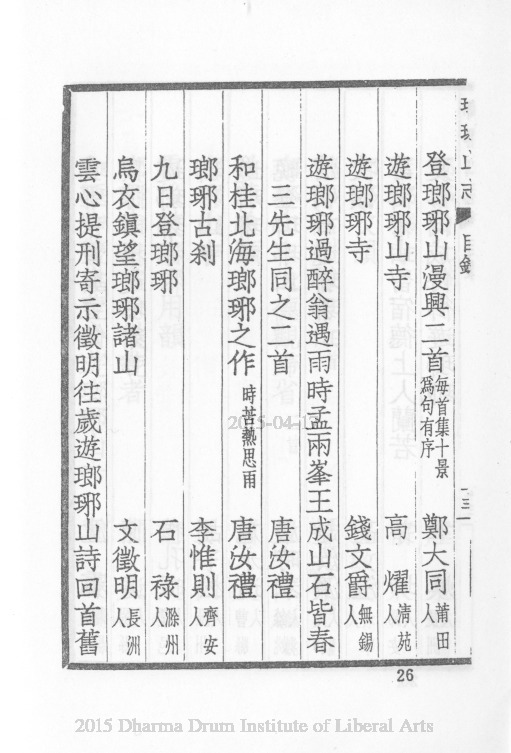 瑯琊山志 目錄 一三
登瑯琊山漫興二首 每首集十景爲句有序 鄭大同 莆田人
遊瑯琊山寺 高燿 清苑人
遊瑯琊寺 錢文爵 無錫人
遊瑯琊過醉翁遇雨時孟兩峯王成山石皆春
三先生同之二首 唐汝禮
和桂北海瑯琊之作 時苦熱思雨 唐汝禮
瑯琊古刹 李惟則 齊安人
九日登瑯琊 石祿 滁州人
烏衣鎮望瑯琊諸山 文徵明 長洲人
雲心提刑寄示徵明往歲遊瑯琊山詩回首舊
26
2015-04-1
2015 Dharma Drum Institute of Liberal Arts